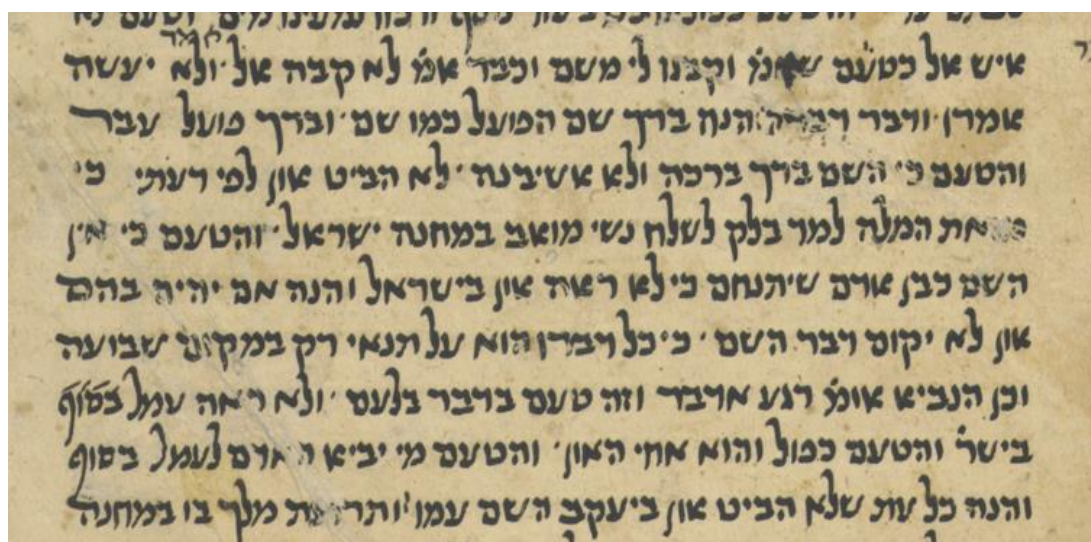 איש אל כטעם שאמ׳ וקבנו לי משם וכבר אמ׳ לא קבה אל ׳ ולא יעשה
אמרו ׳ ודבר דברה הנה ברך שם הפועל כמו שם ׳ וברך פועל עבר
והטעם כי השם ברך ברכה ולא אשיבנה ׳ לא הביט און לפי דעתי כי
מזאת המלה למד בלק לשלח נשי מואב במחנה ישראל ׳ והטעם כי אין
השם כבן אדם שיתנחם כי לא ראה און בישראל והנה אם יהיה בהם
און לא יקום דבר השם ׳ כי כל דבריו הוא על תנאי רק במקום שבועה
וכן הנביא אומ׳ רגע אדבר וזה טעם בדבר בלעם ׳ ולא ראה עמל בסוף
בישר׳ והטעם כפול והוא אחי האון ׳ והטעם מי יביא האדם לעמל בסוף
והנה כל עת שלא הביט און ביעקב השם עמו ׳ ותרועת מלך בו במחנה